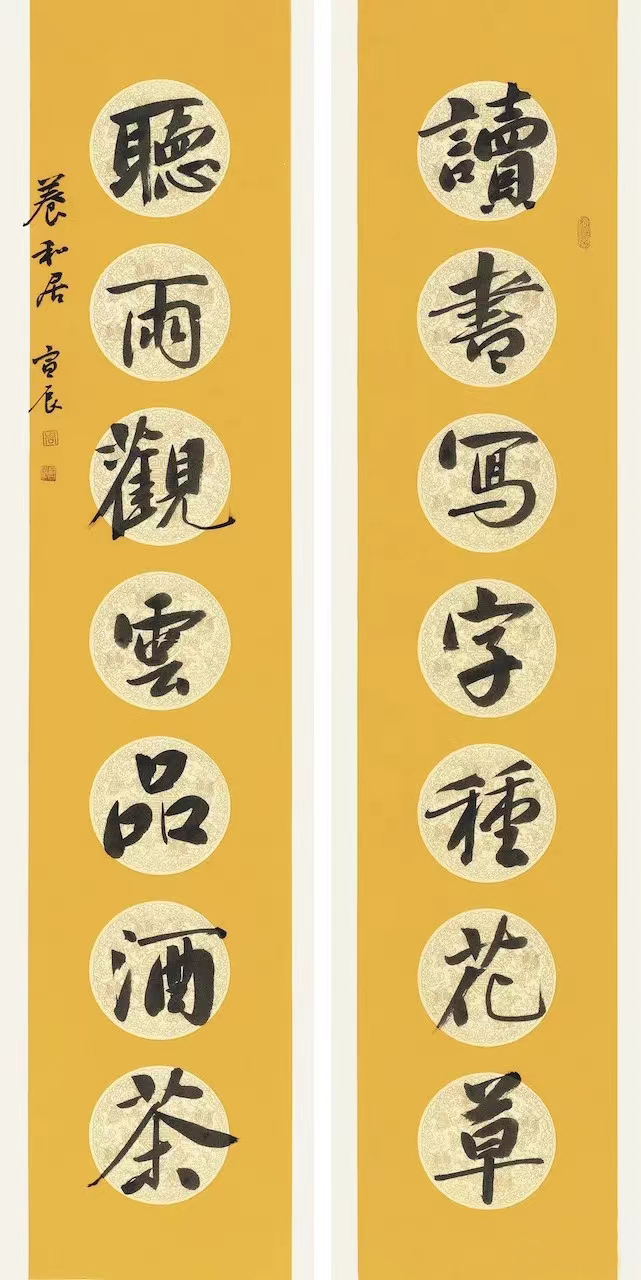 讀書寫字種花草
聽雨觀雲品酒茶
養和居 宣辰